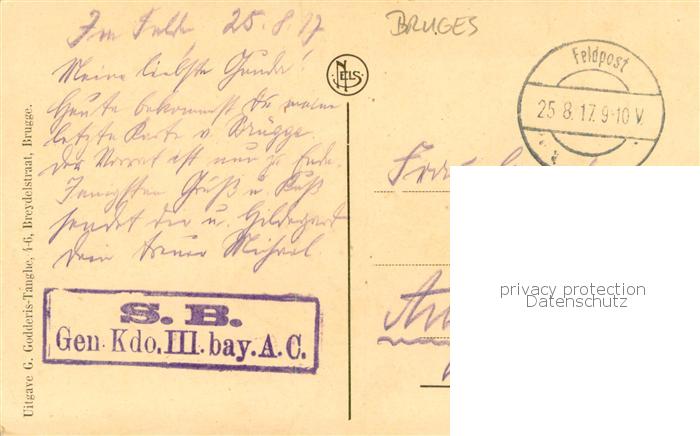 Im Felde 25.8.17
Meine liebste Gunda!
Heute bekommst Du meine
letzte Karte v. Brügge.
Der Vorrat ist nun zu Ende.
Innigsten Gruß u. Kuß
sendet dir u. Hildegard
dein treuer Michael.
S.B.
Gen. Kdo. III. bay. A.C.
Uitgave G. Godderis-Tanghe, 4-6, Breydelstraat, Brugge.
BRUGES
NELS
Feldpost
25 8. 17. 9-10 V.
Frau
privacy protection
Datenschutz